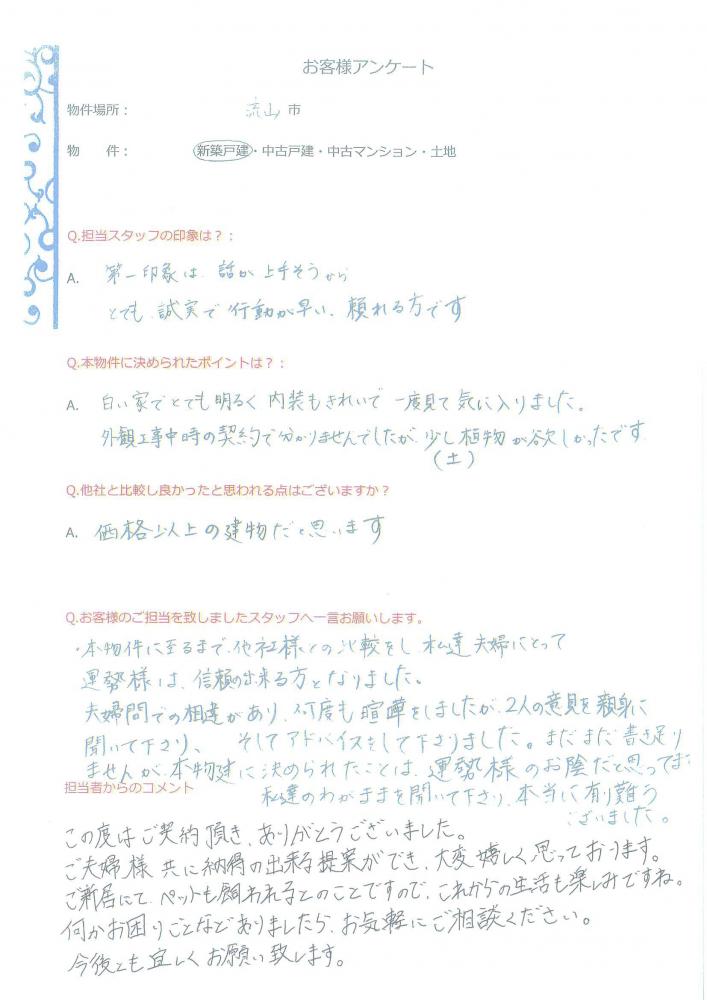 お客様アンケート
物件場所： 流山 市
物　　件： 新築戸建・中古戸建・中古マンション・土地
Q.担当スタッフの印象は？：
A. 第一印象は、話が上手そうから
とても、誠実で行動が早い、頼れる方です
Q.本物件に決められたポイントは？：
A. 白い家でとても明るく内装もきれいで一度見て気に入りました。
外観工事中時の契約で分かりませんでしたが、少し植物が欲しかったです
(土)
Q.他社と比較し良かったと思われる点はございますか？
A. 価格以上の建物だと思います
Q.お客様のご担当を致しましたスタッフへ一言お願いします。
・本物件に至るまで、他社様との比較をし、私達夫婦にとって
運勢様は、信頼の出来る方となりました。
夫婦間での相違があり、何度も喧嘩をしましたが、2人の意見を親身に
聞いて下さり、そしてアドバイスをして下さりました。まだまだ書き足り
ませんが、本物建に決められたことは、運勢様のお陰だと思ってます
私達のわがままを聞いて下さり、本当に有り難う
ございました。
担当者からのコメント
この度はご契約頂き、ありがとうございました。
ご夫婦様共に納得の出来る提案ができ、大変嬉しく思っております。
ご新居にて、ペットも飼われるとのことですので、これからの生活も楽しみですね。
何かお困りごとなどありましたら、お気軽にご相談ください。
今後とも宜しくお願い致します。